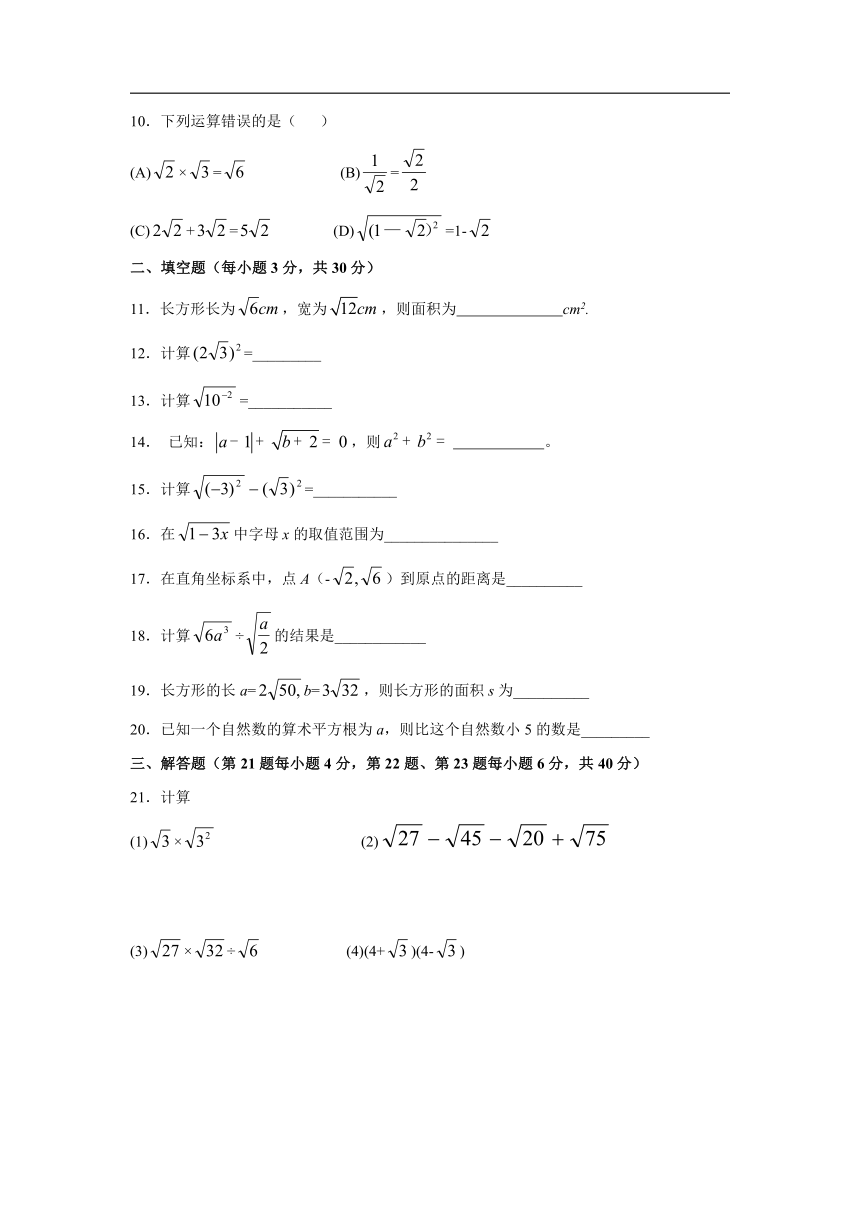 10．下列运算错误的是（　　）
(A) √2 × √3 = √6　　(B) 1/√2 = √2/2
(C) 2√2 + 3√2 = 5√2　　(D) √((1—√2)²) =1-√2
二、填空题（每小题 3 分，共 30 分）
11．长方形长为 √6cm ，宽为 √12cm ，则面积为____________cm².
12．计算 (2√3)² =_________
13．计算 √(10⁻²) =___________
14． 已知：|a－1|＋ √(b＋2) = 0，则 a²＋ b² = ____________。
15．计算 √((−3)²) − (√3)² =___________
16．在 √(1−3x) 中字母 x 的取值范围为_______________
17．在直角坐标系中，点 A（- √2, √6 ）到原点的距离是__________
18．计算 √(6a³) ÷ √(a/2) 的结果是____________
19．长方形的长 a= 2√50, b= 3√32 ，则长方形的面积 s 为__________
20．已知一个自然数的算术平方根为 a，则比这个自然数小 5 的数是_________
三、解答题（第 21 题每小题 4 分，第 22 题、第 23 题每小题 6 分，共 40 分）
21．计算
(1) √3 × √(3²)　　(2) √27 − √45 − √20 + √75
(3) √27 × √32 ÷ √6　　(4)(4+ √3 )(4- √3 )